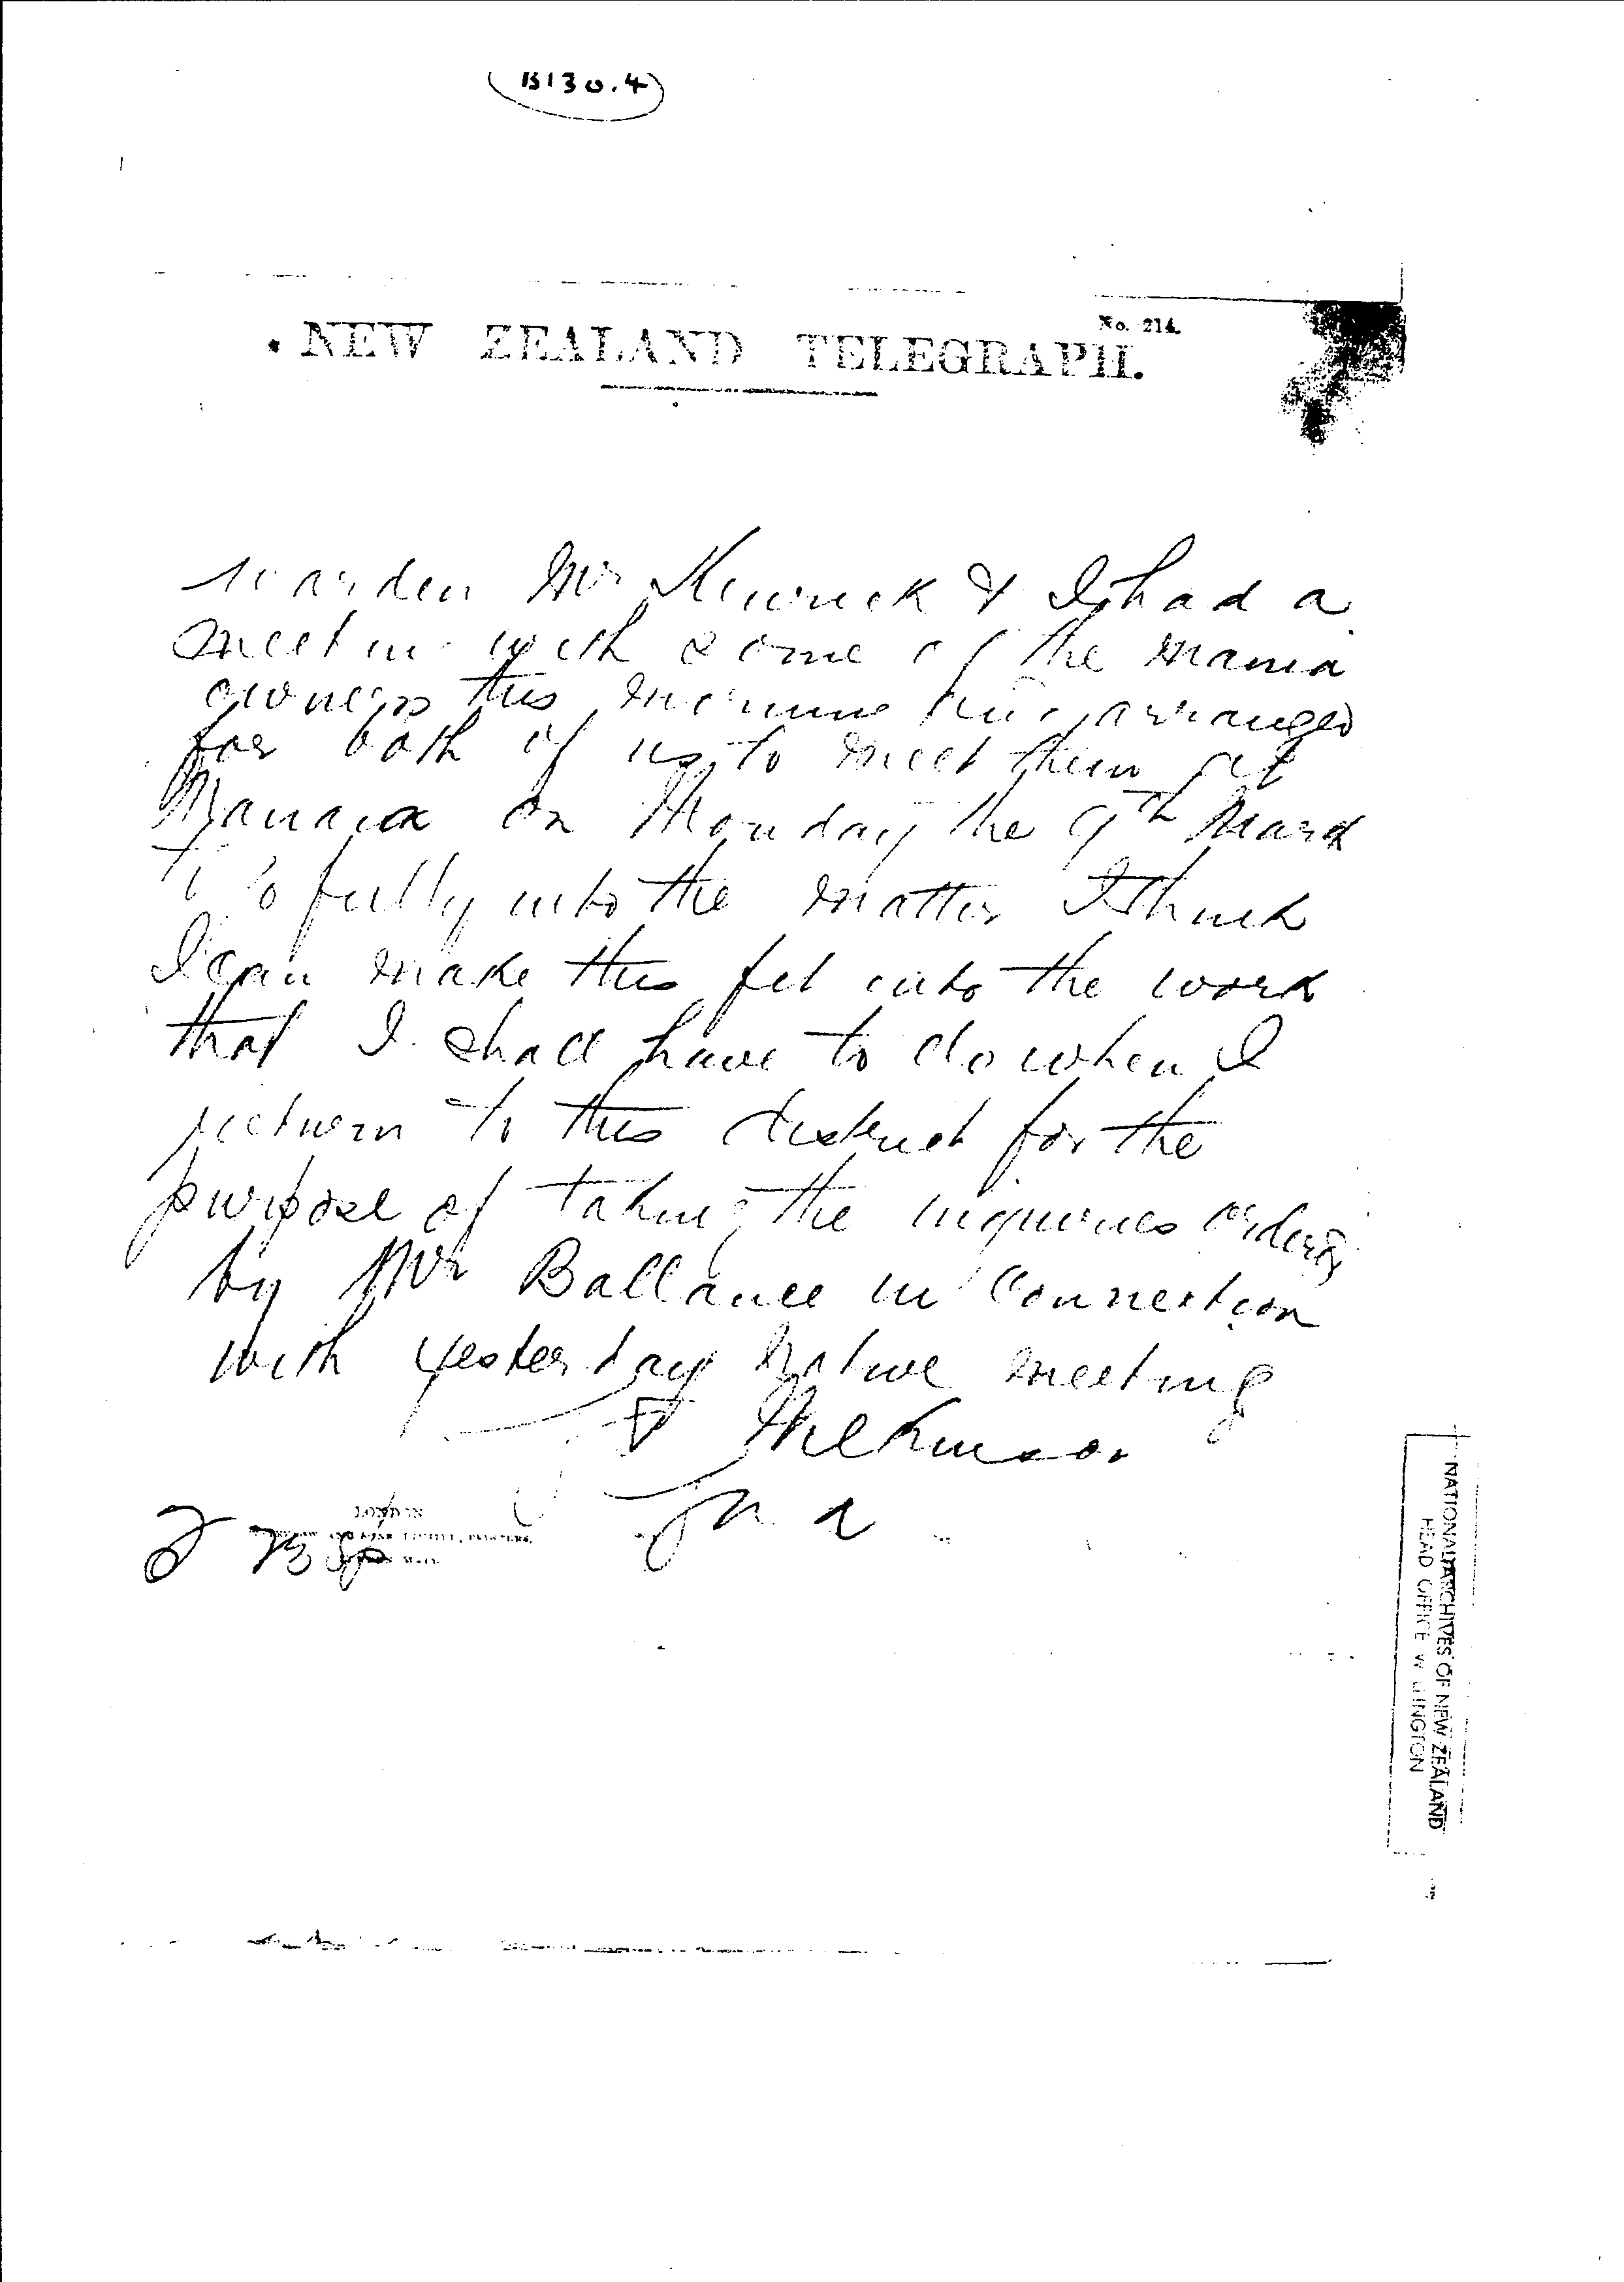 B130.4
No. 214.
NEW ZEALAND TELEGRAPH.
warden Mr Kenrick & I had a
meeting with some of the mania
owners this morning and arranged
for both of us to meet them at
Manaia on Monday the 9th March
to go fully into the matter I think
I can make this fit into the work
that I shall have to do when I
return to this district for the
purpose of taking the inquiries ordered
by Mr Ballance in connection
with yesterday native meeting
Wilkinson
LONDON
NATIONAL ARCHIVES OF NEW ZEALAND
HEAD OFFICE WELLINGTON